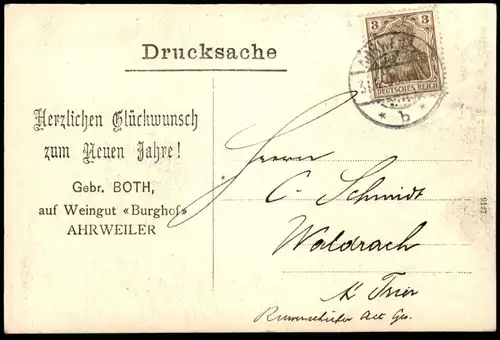 Drucksache
3 3
DEUTSCHES REICH
* b *
Herzlichen Glückwunsch
zum Neuen Jahre!
Gebr. BOTH,
auf Weingut «Burghof»
AHRWEILER
Herrn
C. Schmidt
Waldrach
b/ Trier
Act. Ges.